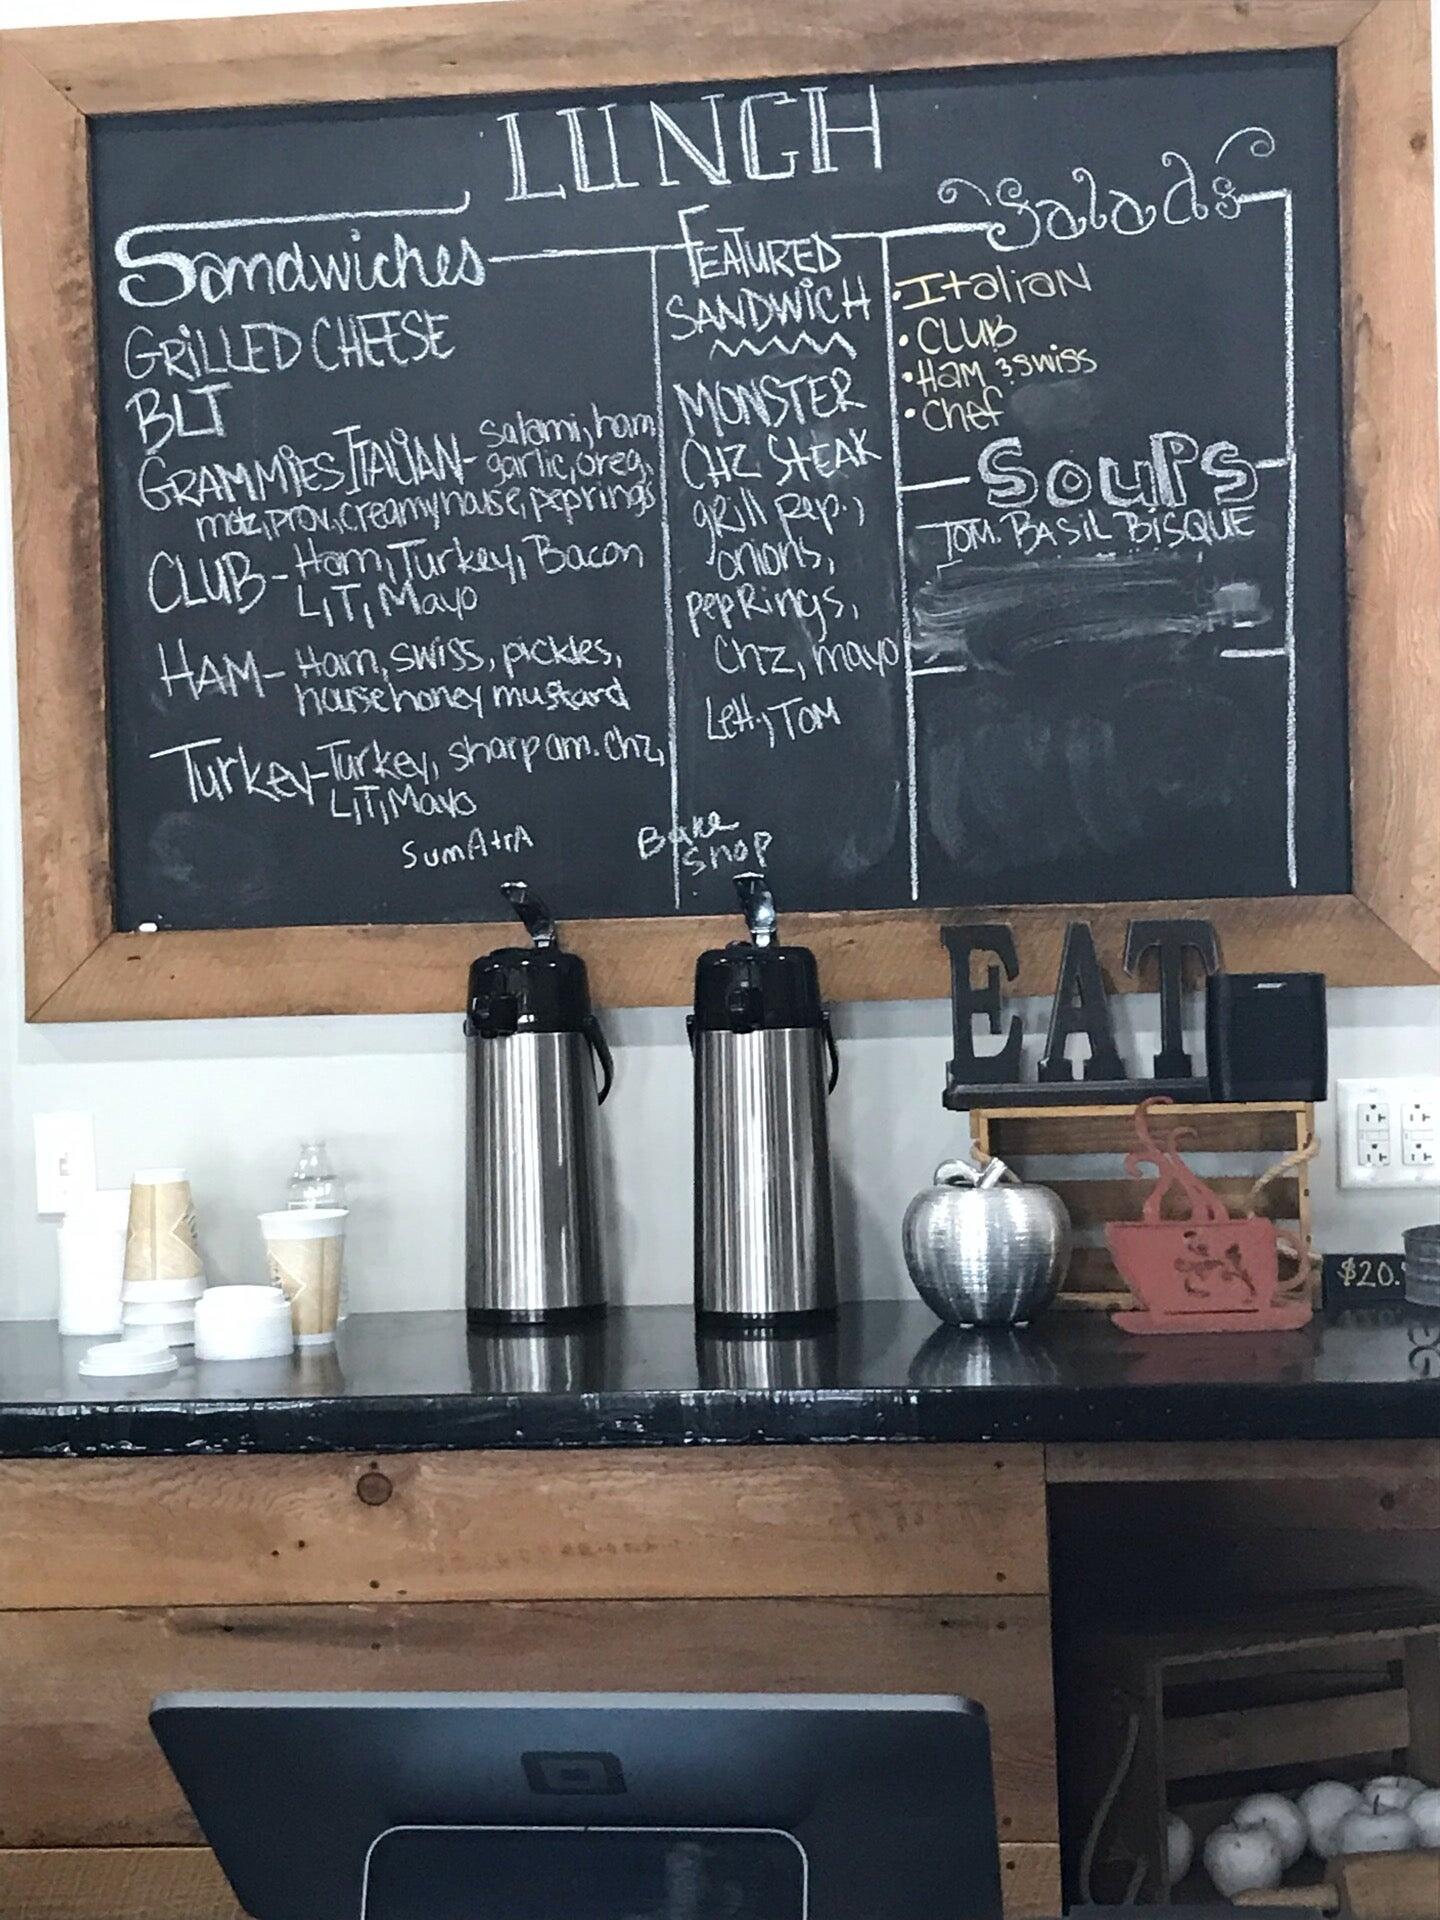 LUNCH
Sandwiches
GRILLED CHEESE
BLT
GRAMMIES ITALIAN- salami, ham,
garlic, oreg,
motz, prov, creamy house, pep rings
CLUB- Ham, Turkey, Bacon
L, T, Mayo
HAM- Ham, swiss, pickles,
house honey mustard
Turkey- Turkey, sharp am. chz,
L, T, Mayo
SumAtrA
FEATURED
SANDWICH
MONSTER
CHZ STEAK
grill pep.,
onions,
pep Rings,
Chz, mayo
Lett., TOM
Bake
Shop
Salads
• Italian
• CLUB
• Ham & swiss
• Chef
SOUPS
TOM. BASIL BISQUE
EAT
BOSE
$20.